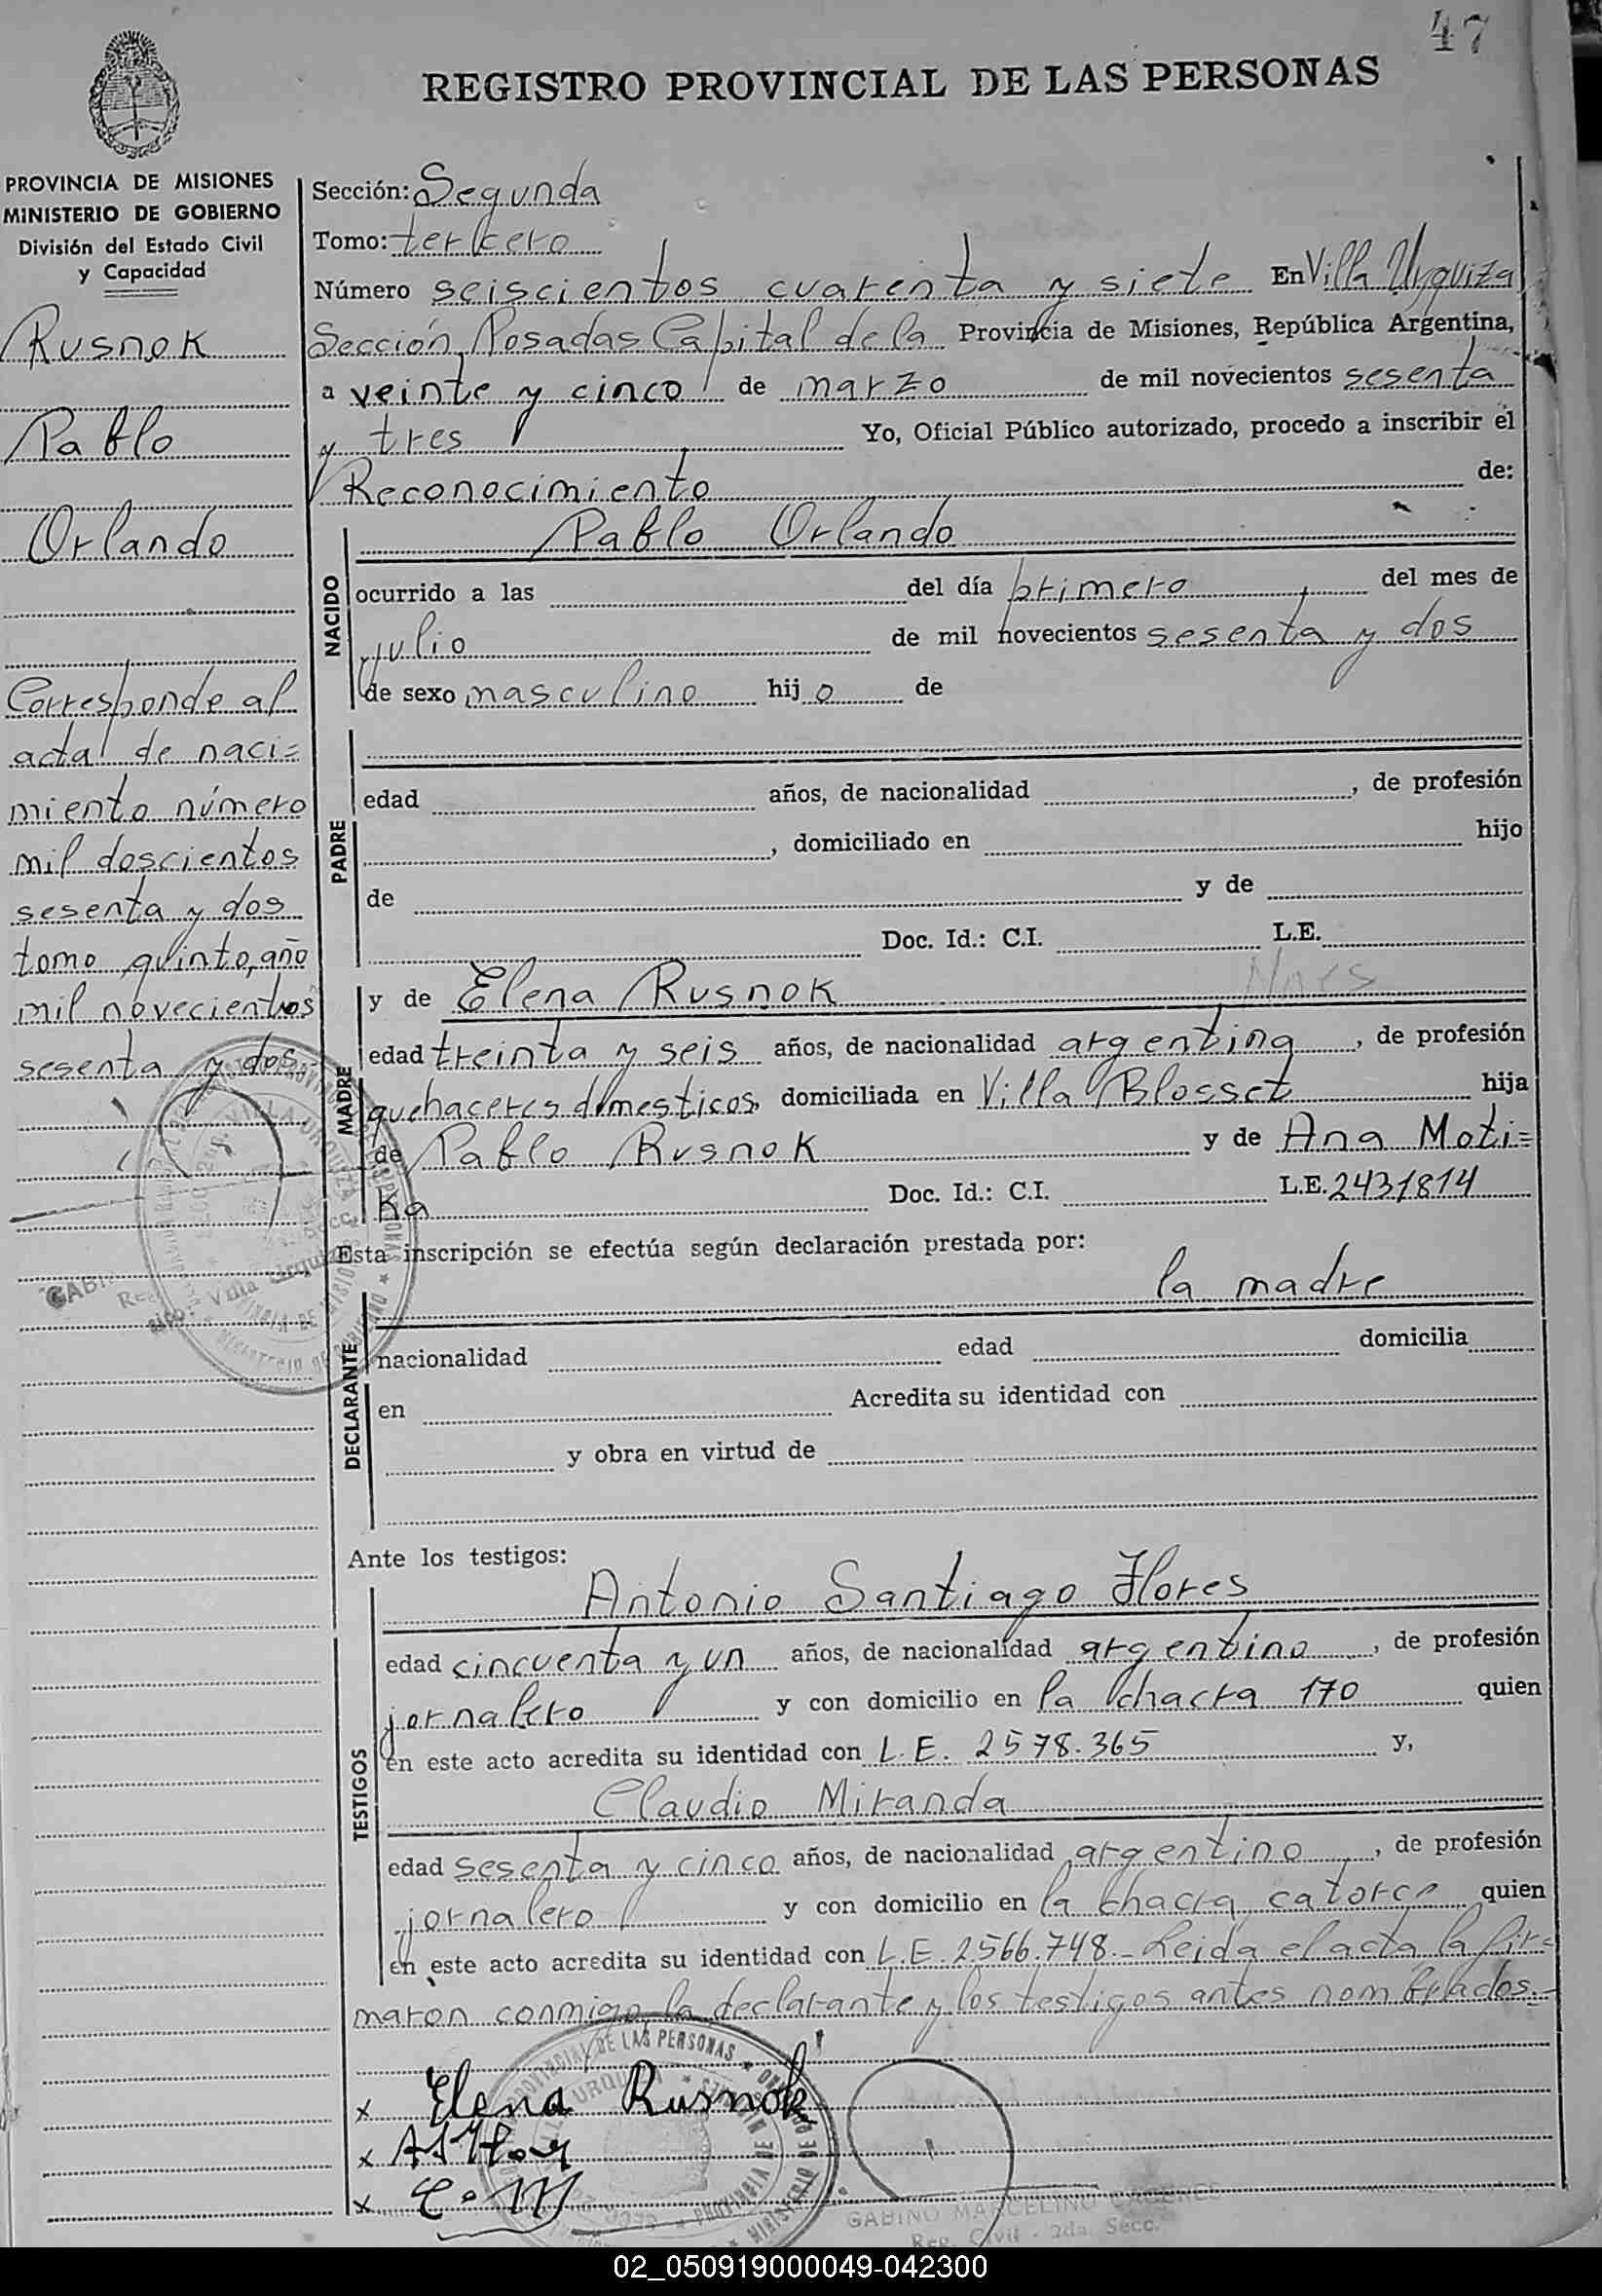 47
REGISTRO PROVINCIAL DE LAS PERSONAS
PROVINCIA DE MISIONES
MINISTERIO DE GOBIERNO
División del Estado Civil
y Capacidad
Rusnok
Pablo
Orlando
Corresponde al
acta de naci=
miento número
mil doscientos
sesenta y dos
tomo quinto, año
mil novecientos
sesenta y dos
Sección: Segunda
Tomo: tercero
Número seiscientos cuarenta y siete En Villa Urquiza
Sección, Posadas Capital de la Provincia de Misiones, República Argentina,
a veinte y cinco de marzo de mil novecientos sesenta
y tres Yo, Oficial Público autorizado, procedo a inscribir el
Reconocimiento de:
NACIDO
Pablo Orlando
ocurrido a las del día primero del mes de
julio de mil novecientos sesenta y dos
de sexo masculino hijo de
PADRE
edad años, de nacionalidad , de profesión
, domiciliado en hijo
de y de
Doc. Id.: C.I. L.E.
MADRE
y de Elena Rusnok
edad treinta y seis años, de nacionalidad argentina, de profesión
quehaceres domesticos, domiciliada en Villa Blosset hija
de Pablo Rusnok y de Ana Moti=
Ka Doc. Id.: C.I. L.E. 2431814
Esta inscripción se efectúa según declaración prestada por:
DECLARANTE
la madre
nacionalidad edad domicilia
en Acredita su identidad con
y obra en virtud de
Ante los testigos:
TESTIGOS
Antonio Santiago Flores
edad cincuenta y un años, de nacionalidad argentino, de profesión
jornalero y con domicilio en la chacra 170 quien
en este acto acredita su identidad con L.E. 2578.365 y,
Claudio Miranda
edad sesenta y cinco años, de nacionalidad argentino, de profesión
jornalero y con domicilio en la chacra catorce quien
en este acto acredita su identidad con L.E. 2566.748.- Leida el acta la fir=
maron conmigo la declarante y los testigos antes nombrados.-
x Elena Rusnok
x
x
GABINO MARCELINO CACERES
Reg. Civil - 2da. Secc.
02_050919000049-042300